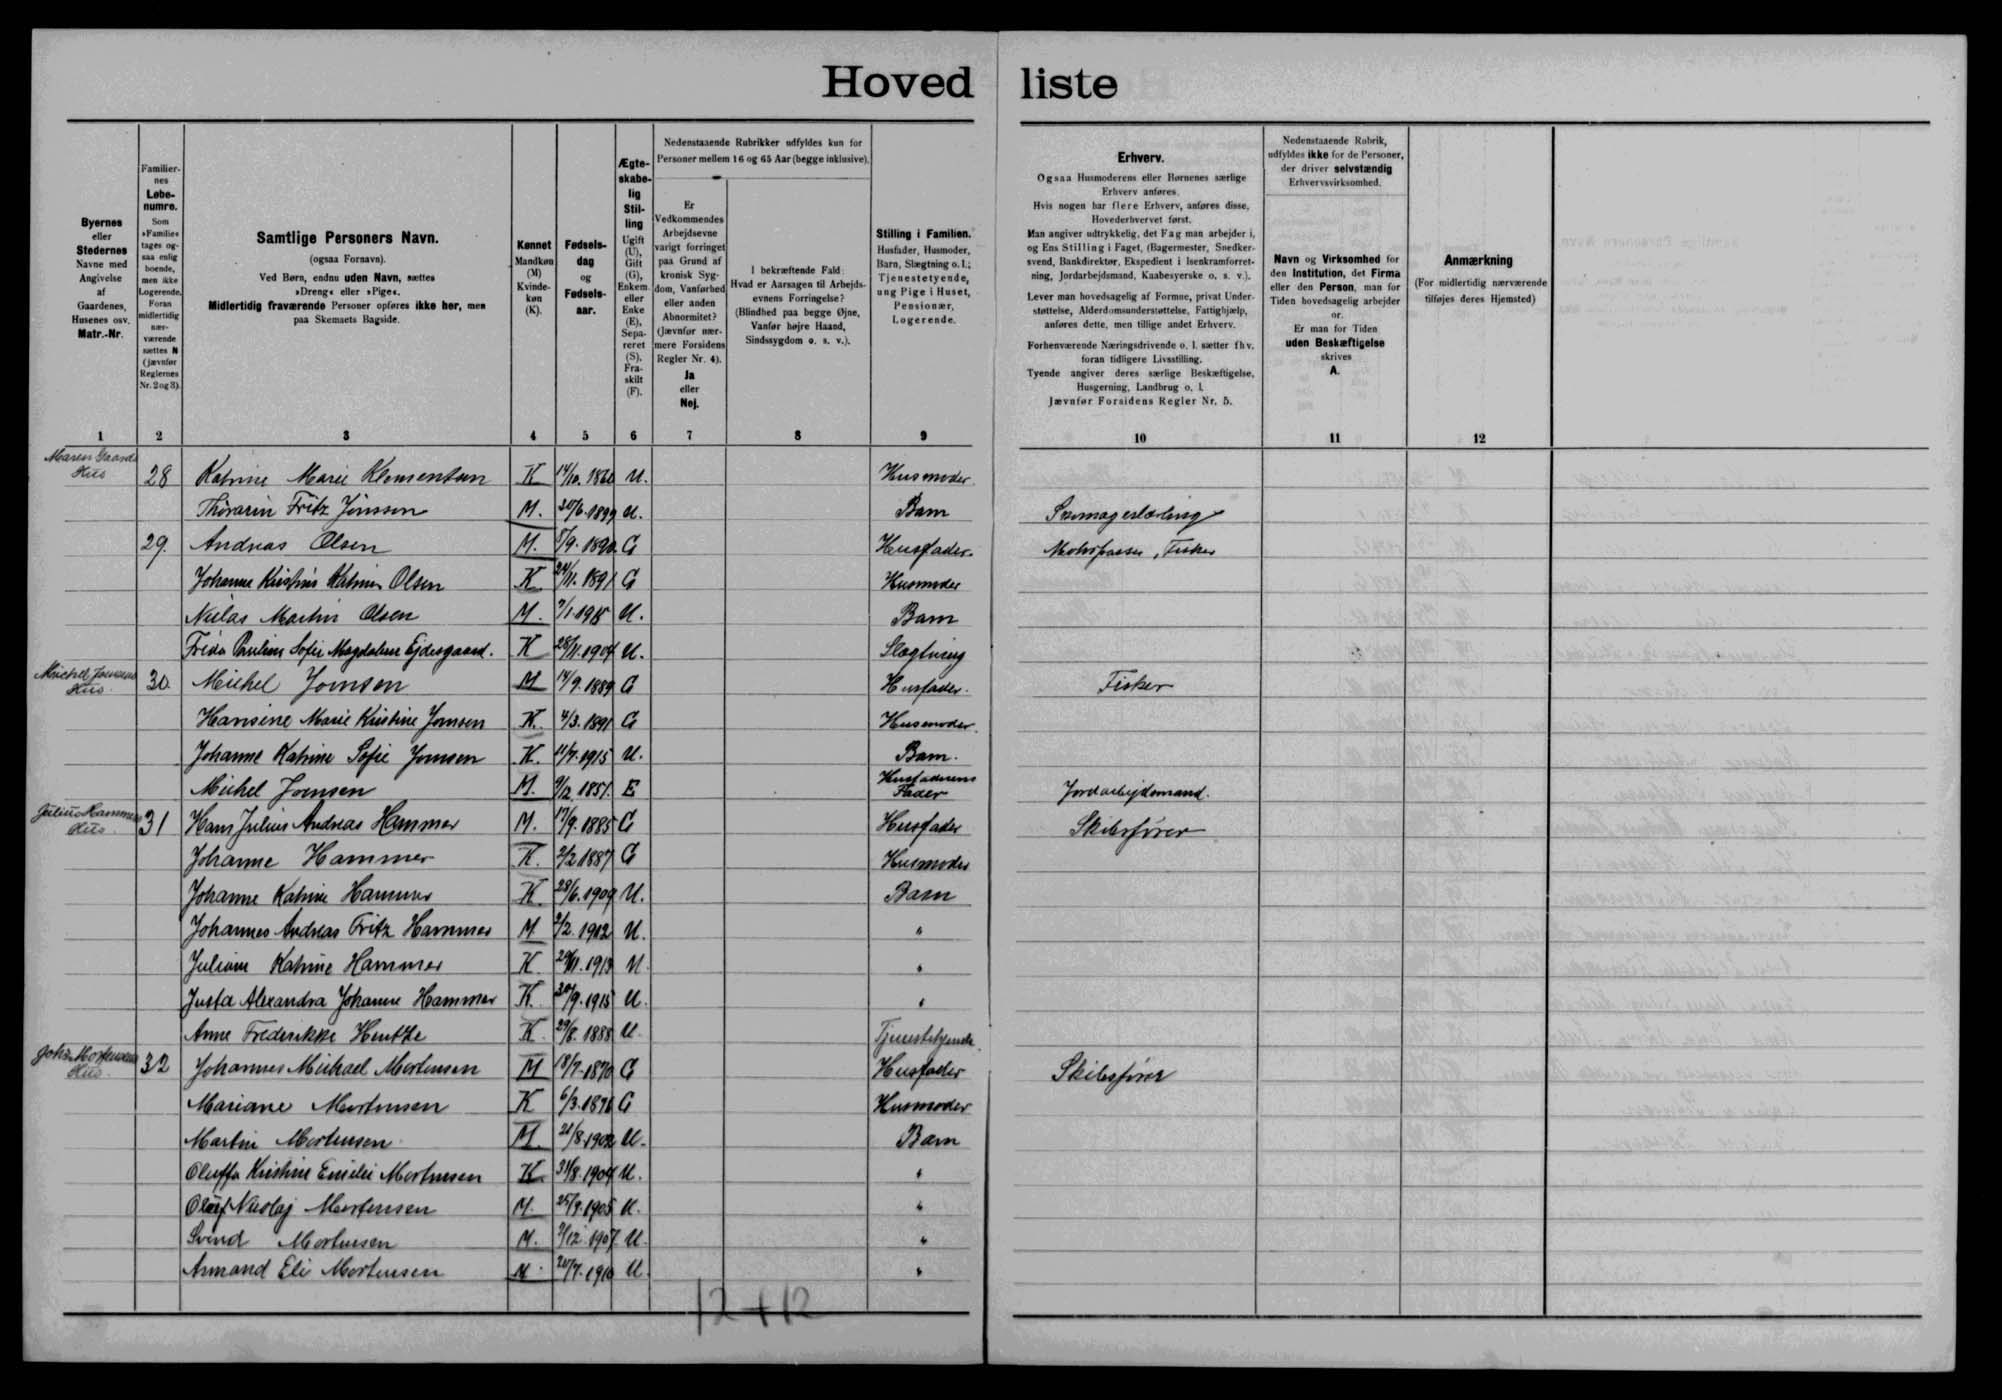 Hoved liste
Byernes
eller
Stedernes
Navne med
Angivelse
af
Gaardenes,
Husenes osv.
Matr.-Nr.
Familier-
nes
Løbe-
numre.
Som
»Familie«
tages og-
saa enlig
boende,
men ikke
Logerende.
Foran
midlertidig
nær-
værende
sættes N
(jævnfør
Reglernes
Nr. 2 og 3).
Samtlige Personers Navn.
(ogsaa Fornavn).
Ved Børn, endnu uden Navn, sættes
»Dreng« eller »Pige«.
Midlertidig fraværende Personer opføres ikke her, men
paa Skemaets Bagside.
Kønnet
Mandkøn
(M)
Kvinde-
køn
(K).
Fødsels-
dag
og
Fødsels-
aar.
Ægte-
skabe-
lig
Stil-
ling
Ugift
(U),
Gift
(G),
Enkem.
eller
Enke
(E),
Sepa-
reret
(S),
Fra-
skilt
(F).
Nedenstaaende Rubrikker udfyldes kun for
Personer mellem 16 og 65 Aar (begge inklusive).
Er
Vedkommendes
Arbejdsevne
varigt forringet
paa Grund af
kronisk Syg-
dom, Vanførhed
eller anden
Abnormitet?
(Jævnfør nær-
mere Forsidens
Regler Nr. 4).
Ja
eller
Nej.
I bekræftende Fald:
Hvad er Aarsagen til Arbejds-
evnens Forringelse?
(Blindhed paa begge Øjne,
Vanfør højre Haand,
Sindssygdom o. s. v.).
Stilling i Familien.
Husfader, Husmoder,
Barn, Slægtning o. l.;
Tjenestetyende,
ung Pige i Huset,
Pensionær,
Logerende.
Erhverv.
Ogsaa Husmoderens eller Børnenes særlige
Erhverv anføres.
Hvis nogen har flere Erhverv, anføres disse,
Hovederhvervet først.
Man angiver udtrykkelig, det Fag man arbejder i,
og Ens Stilling i Faget, (Bagermester, Snedker-
svend, Bankdirektør, Ekspedient i Isenkramforret-
ning, Jordarbejdsmand, Kaabesyerske o. s. v.).
Lever man hovedsagelig af Formue, privat Under-
støttelse, Alderdomsunderstøttelse, Fattighjælp,
anføres dette, men tillige andet Erhverv.
Forhenværende Næringsdrivende o. l. sætter fhv.
foran tidligere Livsstilling.
Tyende angiver deres særlige Beskæftigelse,
Husgerning, Landbrug o. l.
Jævnfør Forsidens Regler Nr. 5.
Nedenstaaende Rubrik,
udfyldes ikke for de Personer,
der driver selvstændig
Erhvervsvirksomhed.
Navn og Virksomhed for
den Institution, det Firma
eller den Person, man for
Tiden hovedsagelig arbejder
for.
Er man for Tiden
uden Beskæftigelse
skrives
A.
Anmærkning
(For midlertidig nærværende
tilføjes deres Hjemsted)
1 2 3 4 5 6 7 8 9 10 11 12
Maren Gaards
Hus 28 Katrine Marie Klementsen K 14/10. 1860 U. Husmoder.
Thórarin Fritz Jónsson M. 20/6. 1899 U. Barn Skomagerlærling
29. Andreas Olsen M. 5/9. 1890. G Husfader. Motorpasser, Fisker
Johanne Kristine Katrine Olsen K 24/11. 1891. G Husmoder
Niclas Martin Olsen M. 7/1. 1915 U. Barn
Frida Pauline Sofie Magdalene Ejdesgaard. K 28/11. 1904 U. Slægtning
Michel Joensens
Hus. 30. Michel Joensen M 14/9. 1889 G Husfader. Fisker
Hansine Marie Kristine Joensen K. 4/3. 1891 G Husmoder.
Johanne Katrine Sofie Joensen K. 11/7. 1915 U. Barn.
Michel Joensen M. 9/12. 1851. E Husfaderens Fader Jordarbejdsmand.
Julius Hammers
Hus. 31 Hans Julius Andreas Hammer M. 17/9. 1885 G Husfader Skibsfører
Johanne Hammer K. 2/2 1887 G Husmoder
Johanne Katrine Hammer K. 28/6. 1909 U. Barn
Johannes Andreas Fritz Hammer M 2/2. 1912 U. "
Juliane Katrine Hammer K. 29/11. 1913 U. "
Justa Alexandra Johanne Hammer K. 30/9. 1915 U. "
Anne Frederikke Hentze K. 29/8. 1888 U. Tjenestetyende.
Johs. Mortensens
Hus. 32 Johannes Michael Mortensen M 18/7. 1870 G Husfader Skibsfører
Mariane Mortensen K 6/3. 1876 G Husmoder
Martin Mortensen M. 21/8. 1902 U. Barn
Oluffa Kristine Emilie Mortensen K 31/8. 1904 U. "
Oluf Nicolaj Mortensen M. 25/9. 1905 U. "
Svend Mortensen M. 9/12. 1907. U. "
Armand Eli Mortensen M. 20/7. 1910 U. "
12 + 12